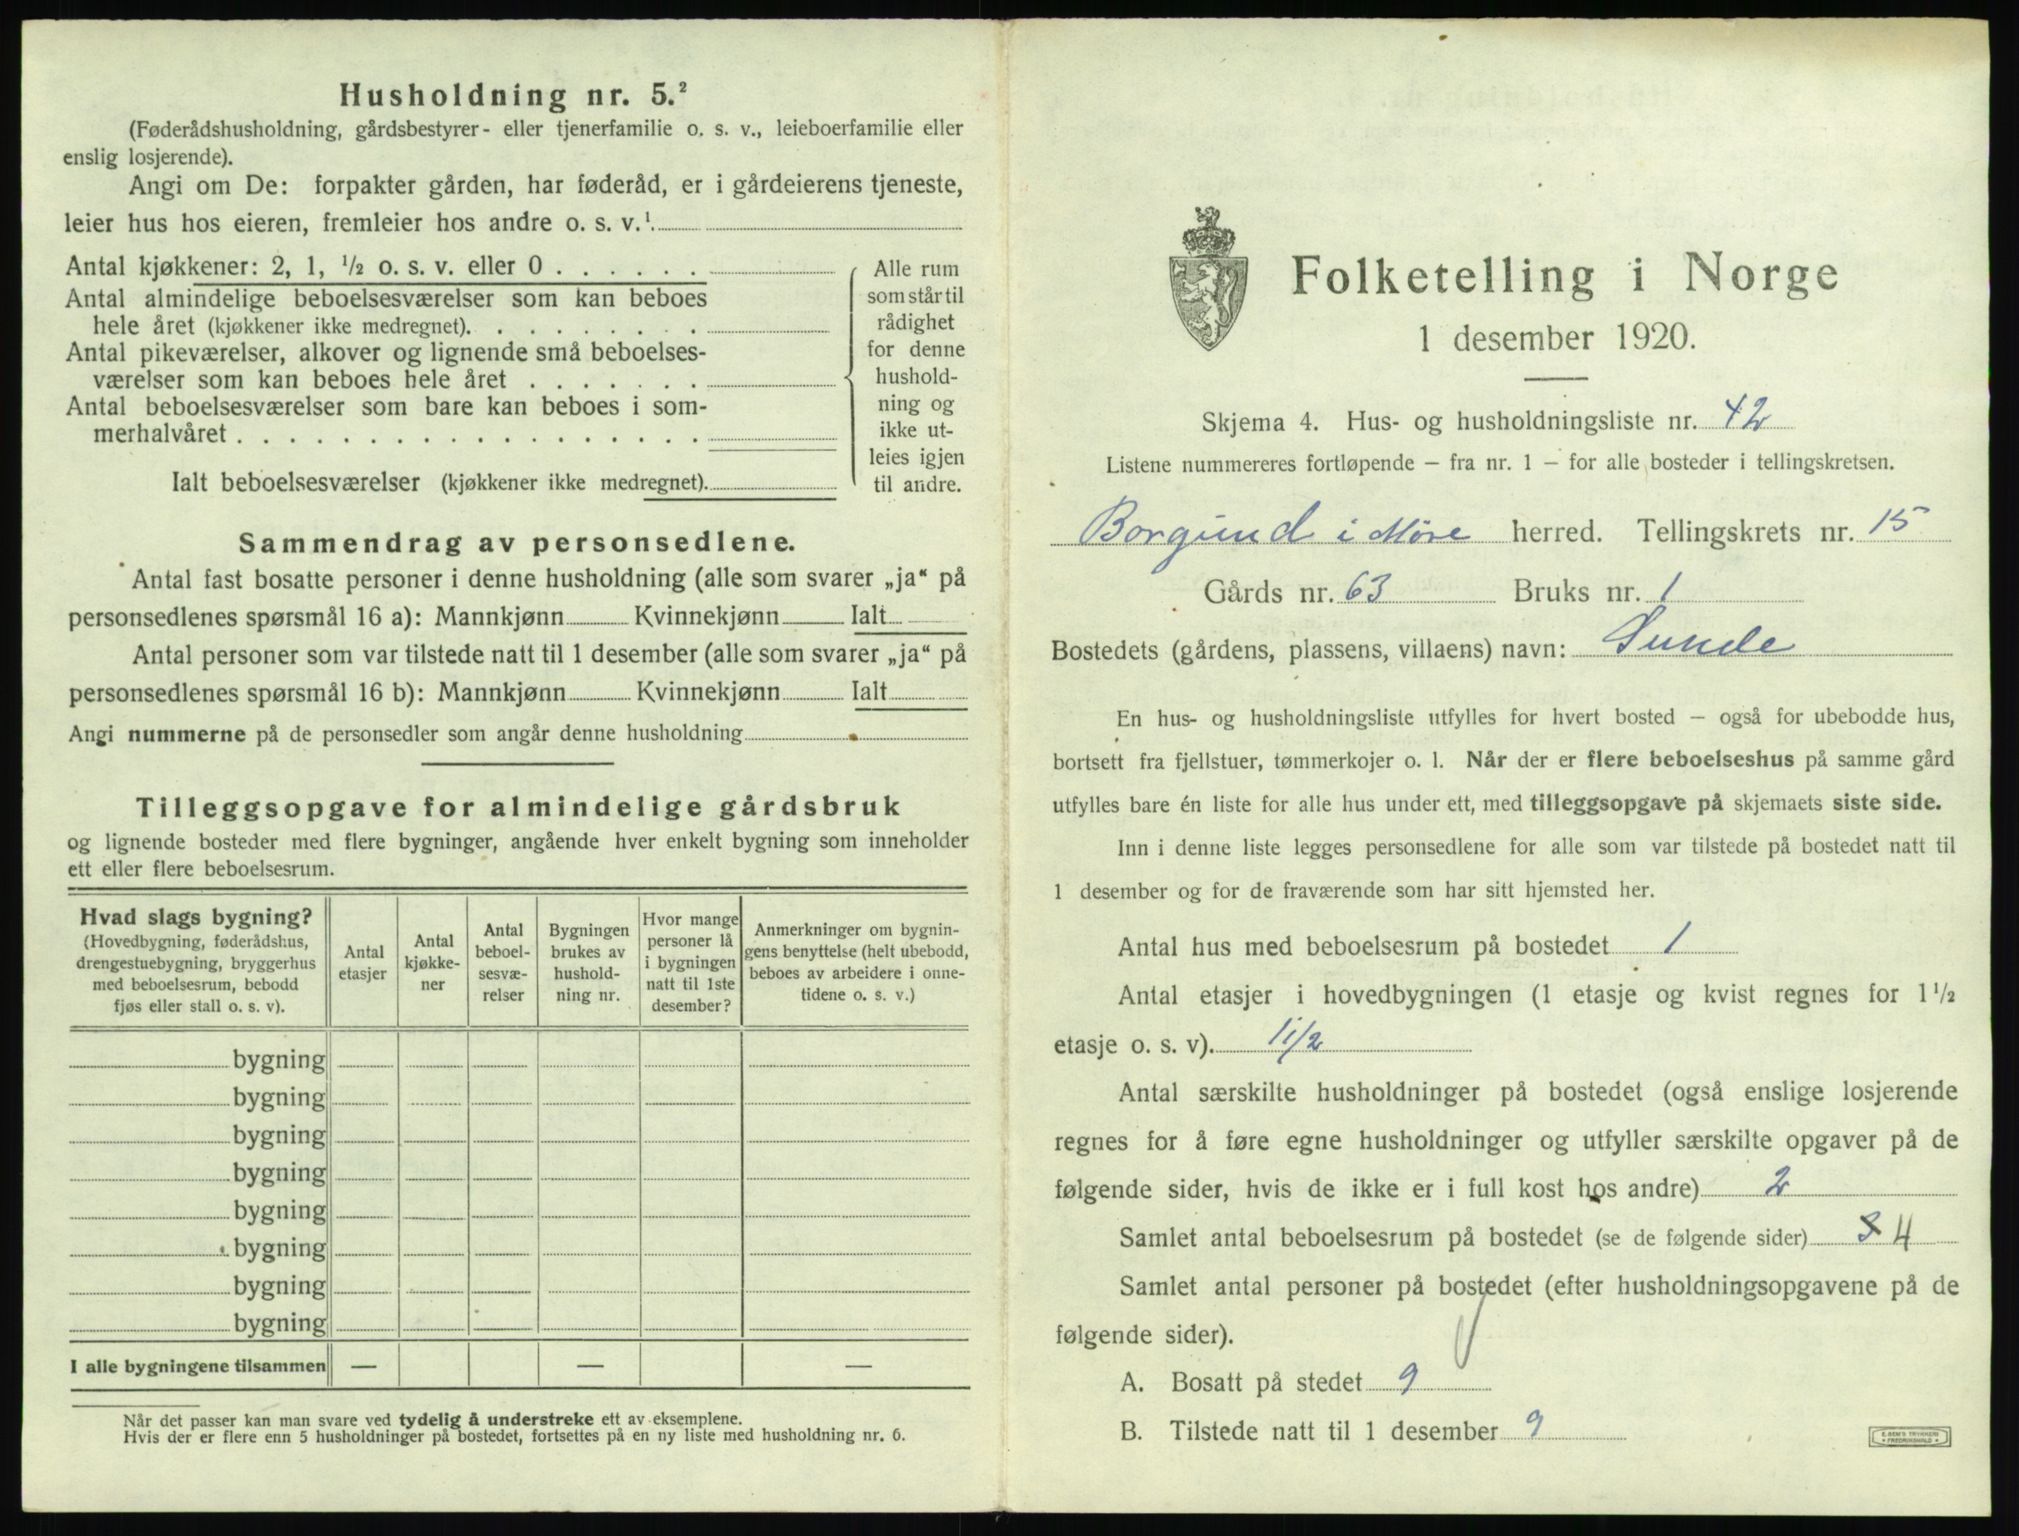 Husholdning nr. 5.²
(Føderådshusholdning, gårdsbestyrer- eller tjenerfamilie o. s. v., leieboerfamilie eller
enslig losjerende).
Angi om De: forpakter gården, har føderåd, er i gårdeierens tjeneste,
leier hus hos eieren, fremleier hos andre o. s. v.¹
Antal kjøkkener: 2, 1, ½ o. s. v. eller 0 . . . . . .
Antal almindelige beboelsesværelser som kan beboes
hele året (kjøkkener ikke medregnet). . . . . . . . .
Antal pikeværelser, alkover og lignende små beboelses-
værelser som kan beboes hele året . . . . . . .
Antal beboelsesværelser som bare kan beboes i som-
merhalvåret . . . . . . . . . . . . . . . . . .
Ialt beboelsesværelser (kjøkkener ikke medregnet).
Alle rum
som står til
rådighet
for denne
hushold-
ning og
ikke ut-
leies igjen
til andre.
Sammendrag av personsedlene.
Antal fast bosatte personer i denne husholdning (alle som svarer „ja“ på
personsedlenes spørsmål 16 a): Mannkjønn Kvinnekjønn Ialt
Antal personer som var tilstede natt til 1 desember (alle som svarer „ja“ på
personsedlenes spørsmål 16 b): Mannkjønn Kvinnekjønn Ialt
Angi nummerne på de personsedler som angår denne husholdning
Tilleggsopgave for almindelige gårdsbruk
og lignende bosteder med flere bygninger, angående hver enkelt bygning som inneholder
ett eller flere beboelsesrum.
Hvad slags bygning?
(Hovedbygning, føderådshus,
drengestuebygning, bryggerhus
med beboelsesrum, bebodd
fjøs eller stall o. s. v).
Antal
etasjer
Antal
kjøkke-
ner
Antal
beboel-
sesvæ-
relser
Bygningen
brukes av
hushold-
ning nr.
Hvor mange
personer lå
i bygningen
natt til 1ste
desember?
Anmerkninger om bygnin-
gens benyttelse (helt ubebodd,
beboes av arbeidere i onne-
tidene o. s. v.)
bygning
bygning
bygning
bygning
bygning
bygning
bygning
bygning
I alle bygningene tilsammen — — —
Når det passer kan man svare ved tydelig å understreke ett av eksemplene.
Hvis der er flere enn 5 husholdninger på bostedet, fortsettes på en ny liste med husholdning nr. 6.
Folketelling i Norge
1 desember 1920.
Skjema 4. Hus- og husholdningsliste nr. 42
Listene nummereres fortløpende – fra nr. 1 – for alle bosteder i tellingskretsen.
Borgund i Møre herred. Tellingskrets nr. 15
Gårds nr. 63 Bruks nr. 1
Bostedets (gårdens, plassens, villaens) navn: Sunde
En hus- og husholdningsliste utfylles for hvert bosted – også for ubebodde hus,
bortsett fra fjellstuer, tømmerkojer o. l. Når der er flere beboelseshus på samme gård
utfylles bare én liste for alle hus under ett, med tilleggsopgave på skjemaets siste side.
Inn i denne liste legges personsedlene for alle som var tilstede på bostedet natt til
1 desember og for de fraværende som har sitt hjemsted her.
Antal hus med beboelsesrum på bostedet 1
Antal etasjer i hovedbygningen (1 etasje og kvist regnes for 1 ½
etasje o. s. v). 1 1/2
Antal særskilte husholdninger på bostedet (også enslige losjerende
regnes for å føre egne husholdninger og utfyller særskilte opgaver på de
følgende sider, hvis de ikke er i full kost hos andre) 2
Samlet antal beboelsesrum på bostedet (se de følgende sider) 4
Samlet antal personer på bostedet (efter husholdningsopgavene på de
følgende sider).
A. Bosatt på stedet 9
B. Tilstede natt til 1 desember 9
E. SEM'S TRYKKERI
FREDRIKSHALD